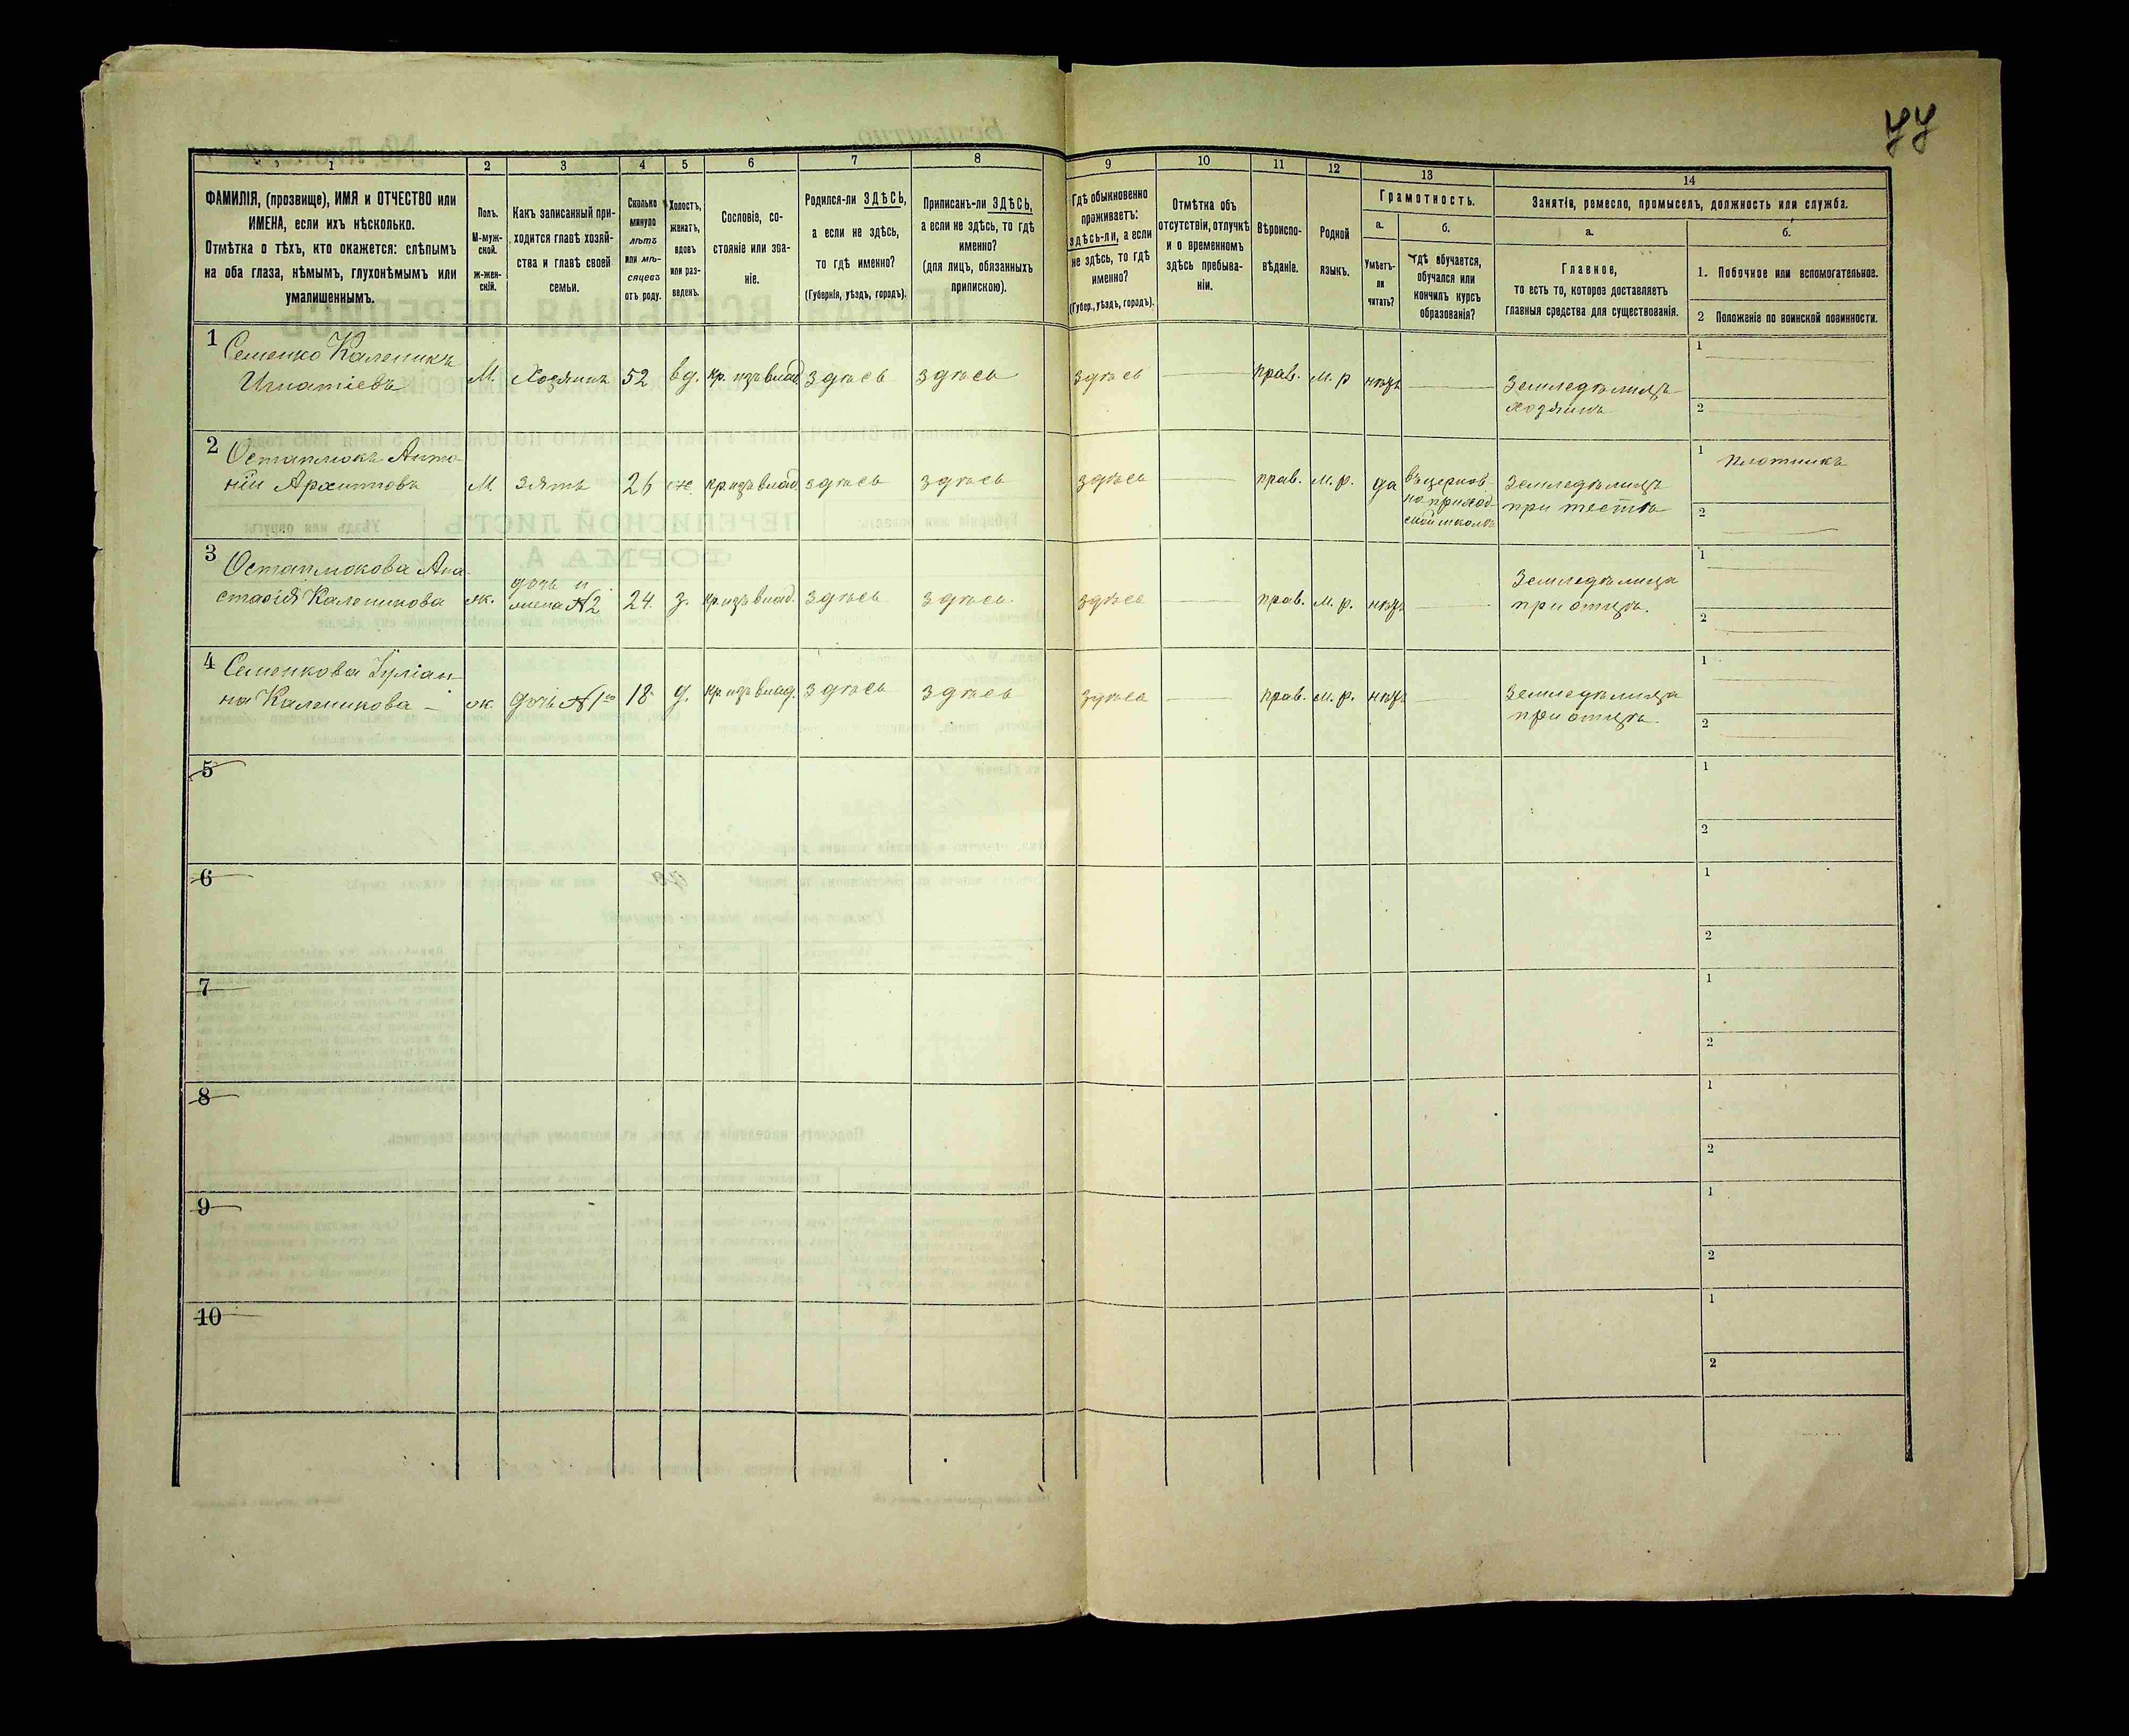 77
1
2
3
4
5
6
7
8
9
10
11
12
13
14
ФАМИЛІЯ, (прозвище), ИМЯ и ОТЧЕСТВО или
ИМЕНА, если ихъ нѣсколько.
Отмѣтка о тѣхъ, кто окажется: слѣпымъ
на оба глаза, нѣмымъ, глухонѣмымъ или
умалишеннымъ.
Полъ.
М-муж-
ской.
ж-жен-
скій.
Какъ записанный при-
ходится главѣ хозяй-
ства и главѣ своей
семьи.
Сколько
минуло
лѣтъ
или мѣ-
сяцевъ
отъ роду.
Холостъ,
женатъ,
вдовъ
или раз-
веденъ.
Сословіе, со-
стояніе или зва-
ніе.
Родился-ли ЗДѢСЬ,
а если не здѣсь,
то гдѣ именно?
(Губернія, уѣздъ, городъ).
Приписанъ-ли ЗДѢСЬ,
а если не здѣсь, то гдѣ
именно?
(для лицъ, обязанныхъ
припискою).
Гдѣ обыкновенно
проживаетъ:
здѣсь-ли, а если
не здѣсь, то гдѣ
именно?
(Губер., уѣздъ, городъ).
Отмѣтка объ
отсутствіи, отлучкѣ
и о временномъ
здѣсь пребыва-
ніи.
Вѣроиспо-
вѣданіе.
Родной
языкъ.
Грамотность.
а.
Умѣетъ-
ли
читать?
б.
гдѣ обучается,
обучался или
кончилъ курсъ
образованія?
Занятія, ремесло, промыселъ, должность или служба.
а.
Главное,
то есть то, которое доставляетъ
главныя средства для существованія.
б.
1. Побочное или вспомогательное.
2 Положеніе по воинской повинности.
1 Семенко Каленикъ
Игнатіевъ
М.
Хозяинъ
52
вд.
кр. изъ влад.
здѣсь
здѣсь
здѣсь
прав.
м. р
нѣтъ
Земледѣлецъ
хозяинъ
1
2
2 Остапчюкъ Анто-
ній Архиповъ
М.
Зять
26
ж.
кр. изъ влад.
здѣсь
здѣсь
здѣсь
прав.
м. р.
да
въ церков-
но приход-
ской школѣ
Земледѣлецъ
при тестѣ
1 Плотникъ
2
3 Остапчюкова Ана-
стасія Каленикова
ж.
дочь и
жена №2
24.
з.
кр. изъ влад.
здѣсь
здѣсь
здѣсь
прав.
м. р.
нѣтъ
Земледѣлица
при отцѣ.
1
2
4 Семенкова Іуліан-
на Каленикова
ж
дочь №1го
18
д.
кр изъ влад.
здѣсь
здѣсь
здѣсь
прав.
м. р.
нѣтъ
Земледѣлица
при отцѣ.
1
2
5
1
2
6
1
2
7
1
2
8
1
2
9
1
2
10
1
2